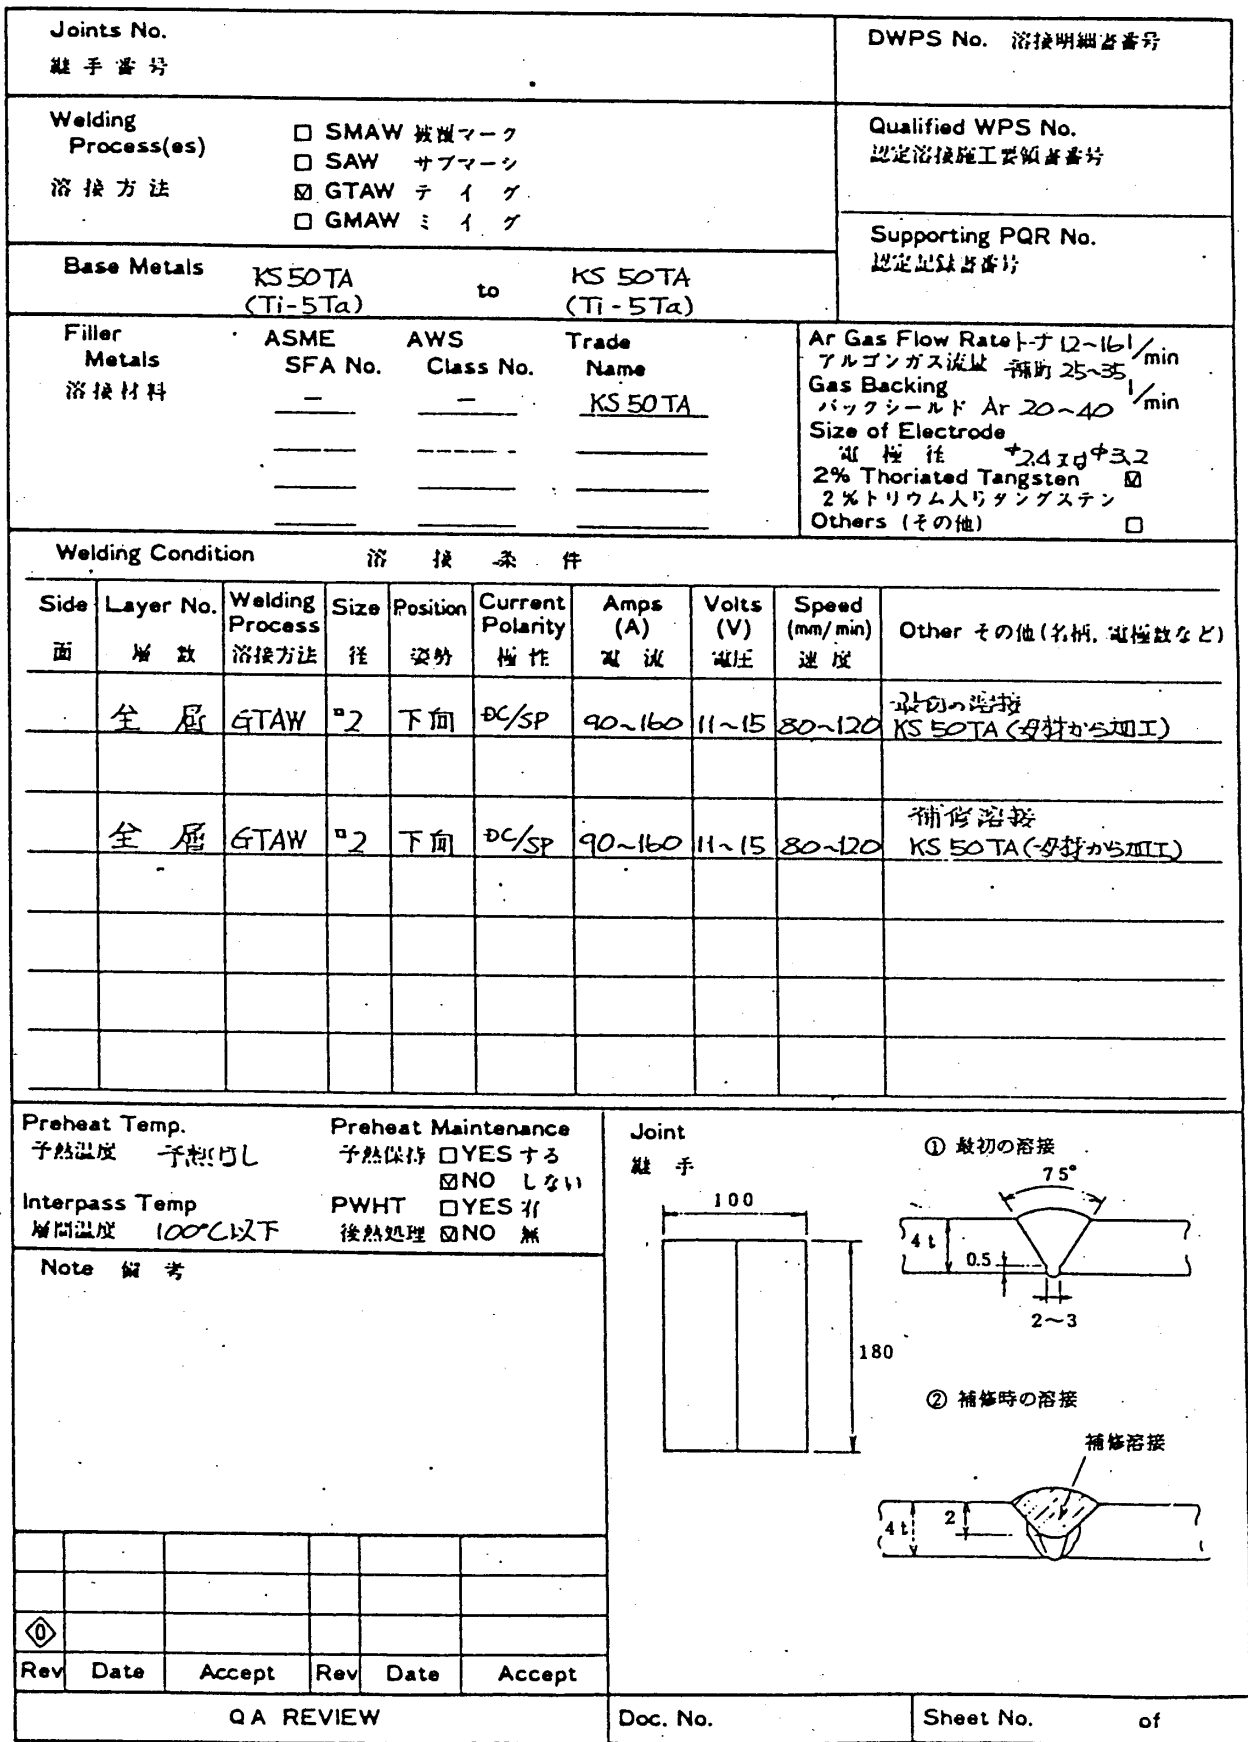 Joints No.
継手番号
DWPS No. 溶接明細書番号
Welding
Process(es)
溶接方法
□ SMAW 被覆アーク
□ SAW サブマージ
☑ GTAW テイグ
□ GMAW ミイグ
Qualified WPS No.
認定溶接施工要領書番号
Supporting PQR No.
認定記録書番号
Base Metals
KS 50TA to KS 50TA
(Ti-5Ta) (Ti-5Ta)
Filler
Metals
溶接材料
ASME
SFA No.
AWS
Class No.
Trade
Name
— — KS 50TA
Ar Gas Flow Rate トーチ 12~16 l/min
アルゴンガス流量 補助 25~35 l/min
Gas Backing
バックシールド Ar 20~40
Size of Electrode
電極径 φ2.4又はφ3.2
2% Thoriated Tangsten ☑
2%トリウム入りタングステン
Others (その他) □
Welding Condition 溶接条件
Side
面
Layer No.
層数
Welding
Process
溶接方法
Size
径
Position
姿勢
Current
Polarity
極性
Amps
(A)
電流
Volts
(V)
電圧
Speed
(mm/min)
速度
Other その他(名柄, 電極数など)
最初の溶接
全層 GTAW □2 下向 DC/SP 90~160 11~15 80~120 KS 50TA (母材から加工)
補修溶接
全層 GTAW □2 下向 DC/SP 90~160 11~15 80~120 KS 50TA (母材から加工)
Preheat Temp.
予熱温度 予熱なし
Interpass Temp
層間温度 100°C以下
Preheat Maintenance
予熱保持 □YES する
☑NO しない
PWHT □YES 有
後熱処理 ☑NO 無
Note 備考
Joint
継手
100
180
① 最初の溶接
75°
4t
0.5
2~3
② 補修時の溶接
補修溶接
4t
2
0
Rev Date Accept Rev Date Accept
QA REVIEW
Doc. No.
Sheet No. of